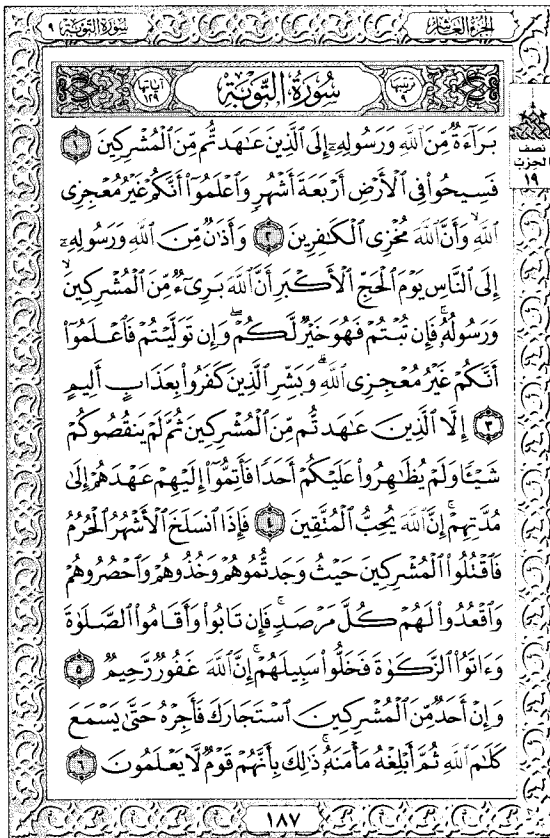 سُورَةُ التَّوْبَةِ ٩
الجُزْءُ العَاشِرُ
ترتيبها ٩
سُورَةُ التَّوْبَةِ
آياتها ١٢٩
نصف الحزب ١٩
بَرَآءَةٌ مِّنَ ٱللَّهِ وَرَسُولِهِۦٓ إِلَى ٱلَّذِينَ عَٰهَدتُّم مِّنَ ٱلْمُشْرِكِينَ ١
فَسِيحُوا۟ فِى ٱلْأَرْضِ أَرْبَعَةَ أَشْهُرٍ وَٱعْلَمُوٓا۟ أَنَّكُمْ غَيْرُ مُعْجِزِى
ٱللَّهِ ۙ وَأَنَّ ٱللَّهَ مُخْزِى ٱلْكَٰفِرِينَ ٢ وَأَذَٰنٌ مِّنَ ٱللَّهِ وَرَسُولِهِۦٓ
إِلَى ٱلنَّاسِ يَوْمَ ٱلْحَجِّ ٱلْأَكْبَرِ أَنَّ ٱللَّهَ بَرِىٓءٌ مِّنَ ٱلْمُشْرِكِينَ ۙ
وَرَسُولُهُۥ ۚ فَإِن تُبْتُمْ فَهُوَ خَيْرٌ لَّكُمْ ۖ وَإِن تَوَلَّيْتُمْ فَٱعْلَمُوٓا۟
أَنَّكُمْ غَيْرُ مُعْجِزِى ٱللَّهِ ۗ وَبَشِّرِ ٱلَّذِينَ كَفَرُوا۟ بِعَذَابٍ أَلِيمٍ
٣ إِلَّا ٱلَّذِينَ عَٰهَدتُّم مِّنَ ٱلْمُشْرِكِينَ ثُمَّ لَمْ يَنقُصُوكُمْ
شَيْـًٔا وَلَمْ يُظَٰهِرُوا۟ عَلَيْكُمْ أَحَدًا فَأَتِمُّوٓا۟ إِلَيْهِمْ عَهْدَهُمْ إِلَىٰ
مُدَّتِهِمْ ۚ إِنَّ ٱللَّهَ يُحِبُّ ٱلْمُتَّقِينَ ٤ فَإِذَا ٱنسَلَخَ ٱلْأَشْهُرُ ٱلْحُرُمُ
فَٱقْتُلُوا۟ ٱلْمُشْرِكِينَ حَيْثُ وَجَدتُّمُوهُمْ وَخُذُوهُمْ وَٱحْصُرُوهُمْ
وَٱقْعُدُوا۟ لَهُمْ كُلَّ مَرْصَدٍ ۚ فَإِن تَابُوا۟ وَأَقَامُوا۟ ٱلصَّلَوٰةَ
وَءَاتَوُا۟ ٱلزَّكَوٰةَ فَخَلُّوا۟ سَبِيلَهُمْ ۚ إِنَّ ٱللَّهَ غَفُورٌ رَّحِيمٌ ٥
وَإِنْ أَحَدٌ مِّنَ ٱلْمُشْرِكِينَ ٱسْتَجَارَكَ فَأَجِرْهُ حَتَّىٰ يَسْمَعَ
كَلَٰمَ ٱللَّهِ ثُمَّ أَبْلِغْهُ مَأْمَنَهُۥ ۚ ذَٰلِكَ بِأَنَّهُمْ قَوْمٌ لَّا يَعْلَمُونَ ٦
١٨٧